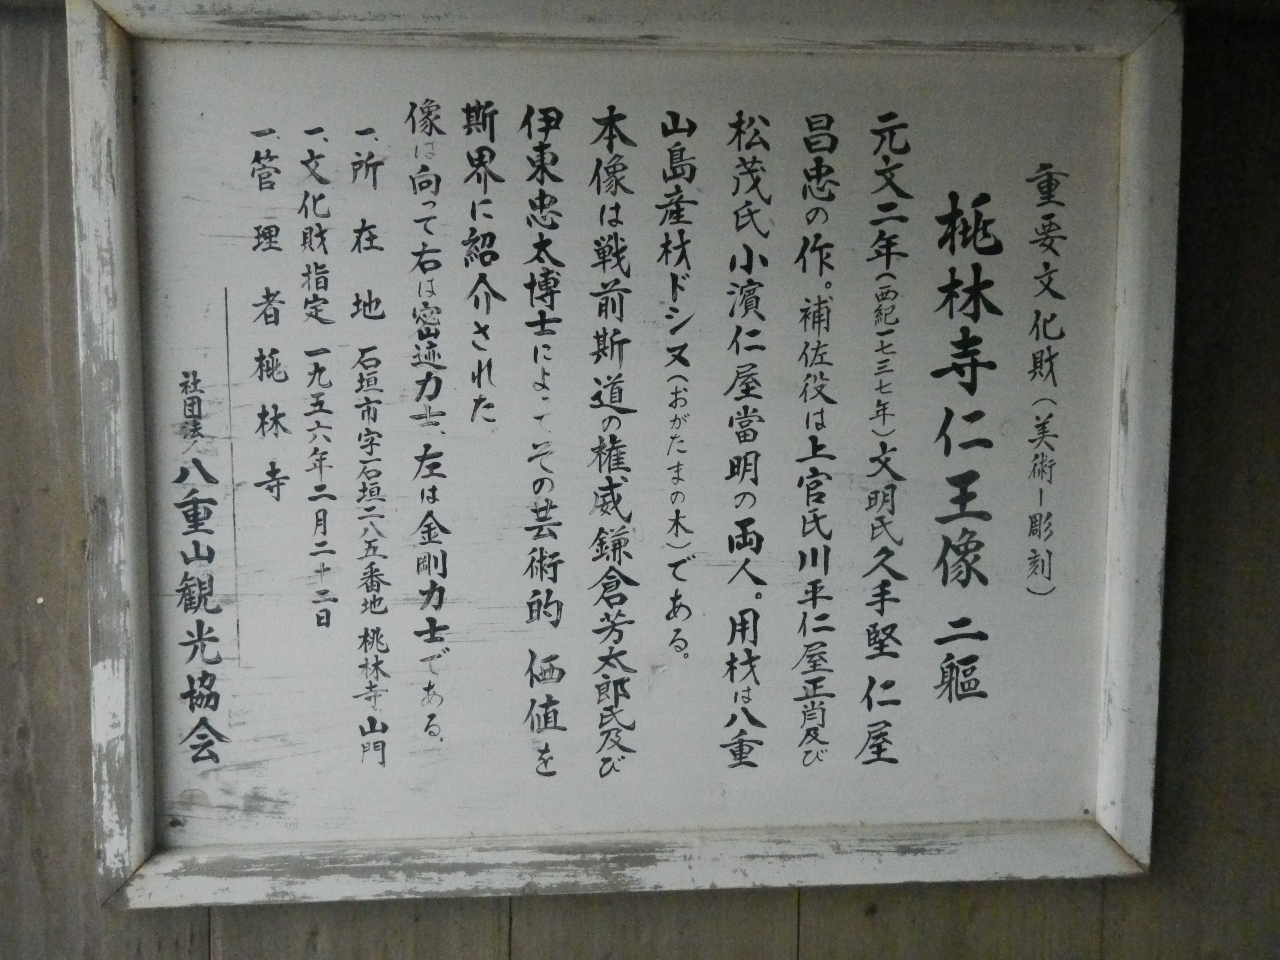 重要文化財(美術ー彫刻)
桃林寺仁王像 二軀
元文二年(西紀一七三七年)文明氏久手堅仁屋
昌忠の作。補佐役は上官氏川平仁屋正肖及び
松茂氏小濱仁屋當明の両人。用材は八重
山島産材ドシヌ(おがたまの木)である。
本像は戦前斯道の権威鎌倉芳太郎氏及び
伊東忠太博士によってその芸術的価値を
斯界に紹介された
像は向って右は密迹力士、左は金剛力士である。
一、所在地 石垣市字石垣二八五番地 桃林寺山門
一、文化財指定 一九五六年二月二十二日
一、管理者 桃林寺
社団法人八重山観光協会